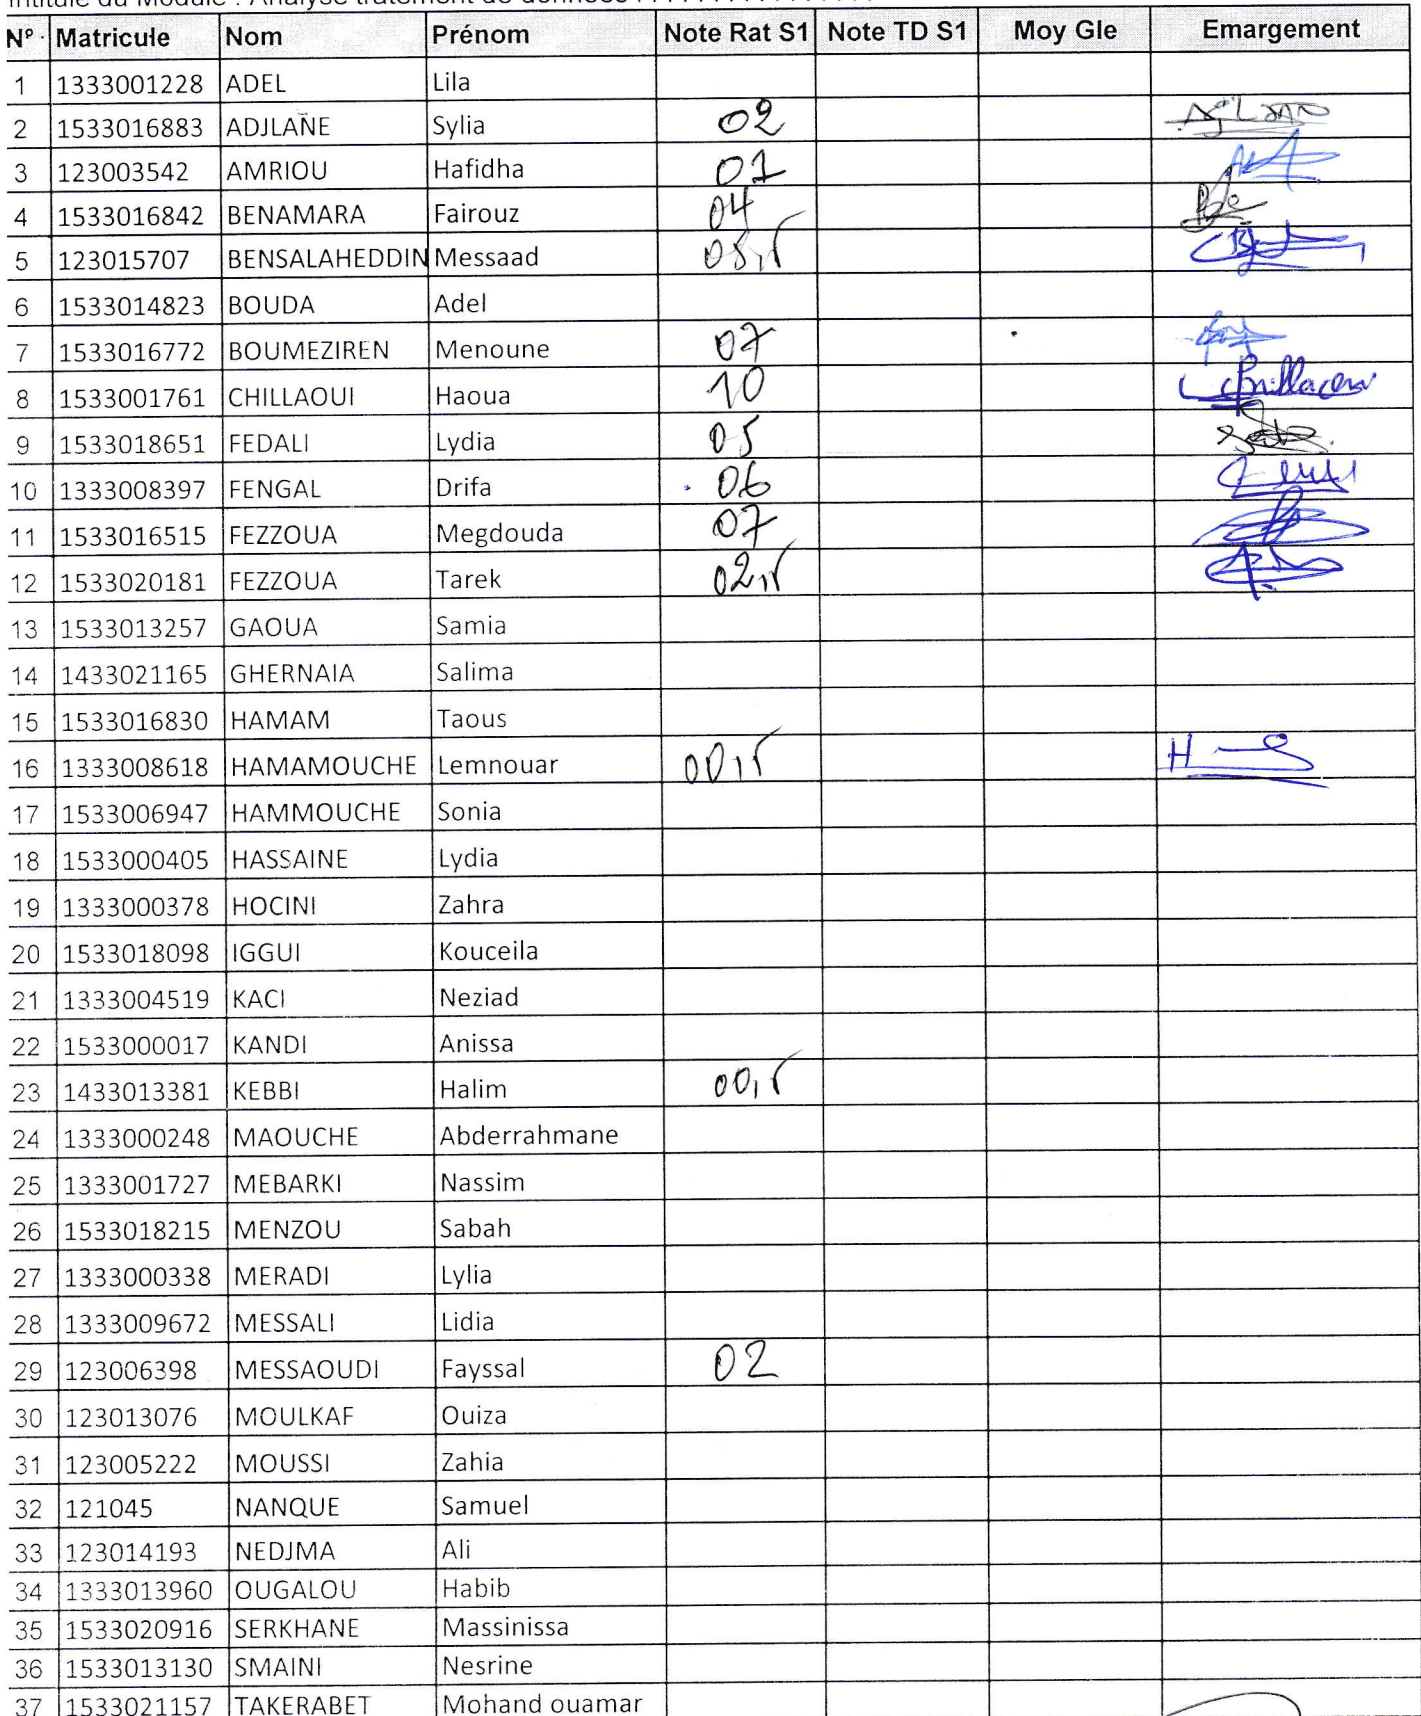 Intitulé du Module : Analyse traitement de données
N° Matricule Nom Prénom Note Rat S1 Note TD S1 Moy Gle Emargement
1 1333001228 ADEL Lila
2 1533016883 ADJLANE Sylia 02
3 123003542 AMRIOU Hafidha 01
4 1533016842 BENAMARA Fairouz 04
5 123015707 BENSALAHEDDIN Messaad 05,5
6 1533014823 BOUDA Adel
7 1533016772 BOUMEZIREN Menoune 07
8 1533001761 CHILLAOUI Haoua 10
9 1533018651 FEDALI Lydia 05
10 1333008397 FENGAL Drifa 06
11 1533016515 FEZZOUA Megdouda 07
12 1533020181 FEZZOUA Tarek 02,5
13 1533013257 GAOUA Samia
14 1433021165 GHERNAIA Salima
15 1533016830 HAMAM Taous
16 1333008618 HAMAMOUCHE Lemnouar 00,5
17 1533006947 HAMMOUCHE Sonia
18 1533000405 HASSAINE Lydia
19 1333000378 HOCINI Zahra
20 1533018098 IGGUI Kouceila
21 1333004519 KACI Neziad
22 1533000017 KANDI Anissa
23 1433013381 KEBBI Halim 00,5
24 1333000248 MAOUCHE Abderrahmane
25 1333001727 MEBARKI Nassim
26 1533018215 MENZOU Sabah
27 1333000338 MERADI Lylia
28 1333009672 MESSALI Lidia
29 123006398 MESSAOUDI Fayssal 02
30 123013076 MOULKAF Ouiza
31 123005222 MOUSSI Zahia
32 121045 NANQUE Samuel
33 123014193 NEDJMA Ali
34 1333013960 OUGALOU Habib
35 1533020916 SERKHANE Massinissa
36 1533013130 SMAINI Nesrine
37 1533021157 TAKERABET Mohand ouamar